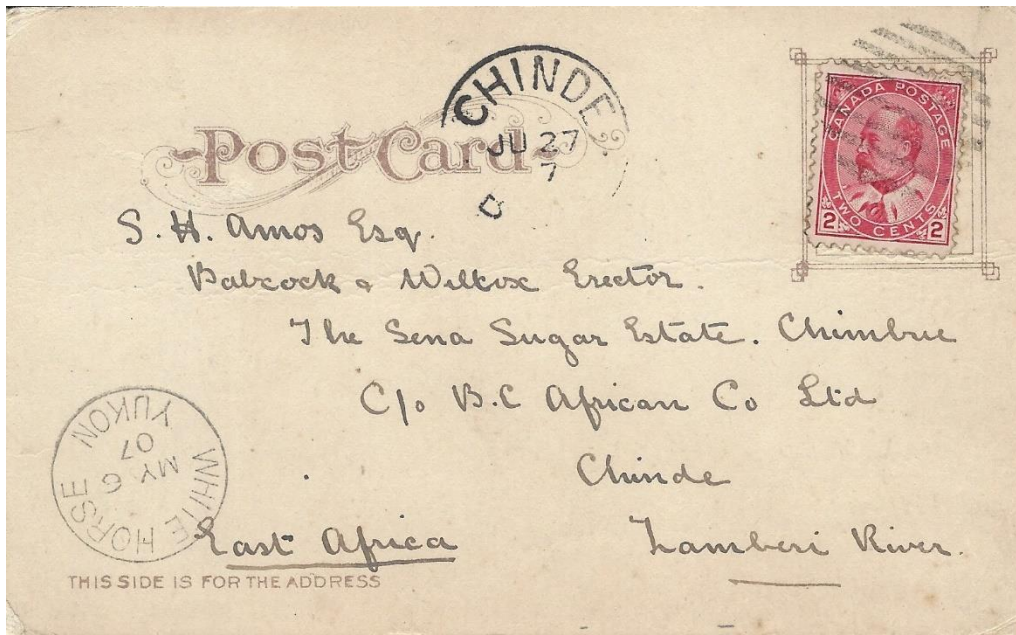 CHINDE
JU 27
7
D
Post Card
CANADA POSTAGE
2 TWO CENTS 2
S. H. Amos Esq.
Babcock & Wilcox Erector.
The Sena Sugar Estate. Chimbue
C/o B.C African Co Ltd
Chinde
East Africa Zamberi River.
WHITE HORSE
MY 6
07
YUKON
THIS SIDE IS FOR THE ADDRESS